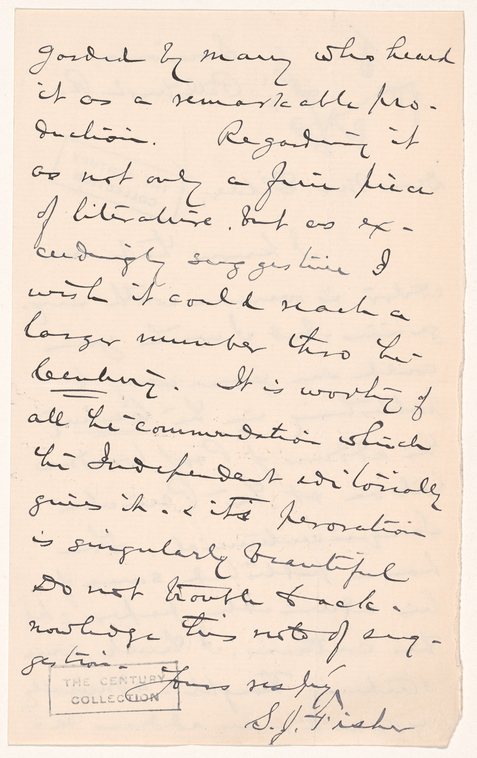 garded by many who heard
it as a remarkable pro-
duction. Regarding it
as not only a fine piece
of literature, but as ex-
ceedingly suggestive I
wish it could reach a
larger number thro the
Century. It is worthy of
all the commendation which
the Independent editorially
gives it. & its peroration
is singularly beautiful
Do not trouble to ack-
nowledge this note of sug-
gestion.
Yours resply
S. J. Fisher
THE CENTURY
COLLECTION